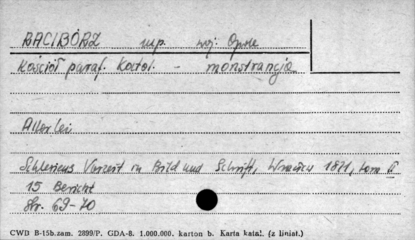 RACIBÓRZ mp. woj. Opole
Kościół paraf. Katol. - monstrancja
Allerlei
Schlesiens Vorzeit in Bild und Schrift, Wrocław 1871, tom I
15 Bericht
Str. 69-70
CWD B-15b.zam. 2899/P. GDA-8. 1.000.000. karton b. Karta katal. (z liniat.)